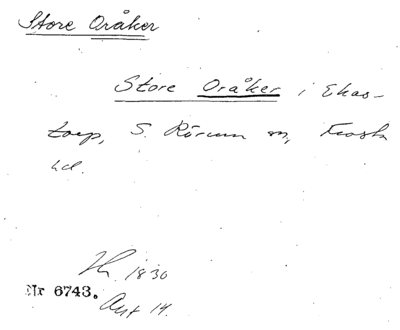 Store Oråker
Store Oråker i Ekas-
torp, S. Rörum sn, Frosta
hd.
1830
Nr 6743. Avst 14.